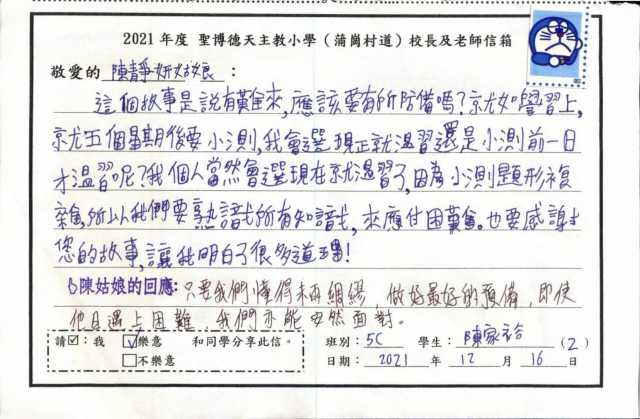 2021 年度 聖博德天主教小學（蒲崗村道）校長及老師信箱
敬愛的 陳靜妍姑娘 ：
這個故事是說有難來,應該要有所防備嗎?就如學習上,
就尤五個星期後要小測,我會選現正就溫習還是小測前一日
才溫習呢?我個人當然會選現在就溫習了,因為小測題形複
雜,所以我們要熟識所有知識,來應付困難。也要感謝
您的故事,讓我明白了很多道理!
陳姑娘的回應: 只要我們懂得未雨綢繆,做好最好的預備,即使
他日遇上困難,我們亦能安然面對。
請☑：我 ☑樂意 和同學分享此信。 班別：5C 學生：陳家裕 (2)
□不樂意 日期：2021 年 12 月 16 日